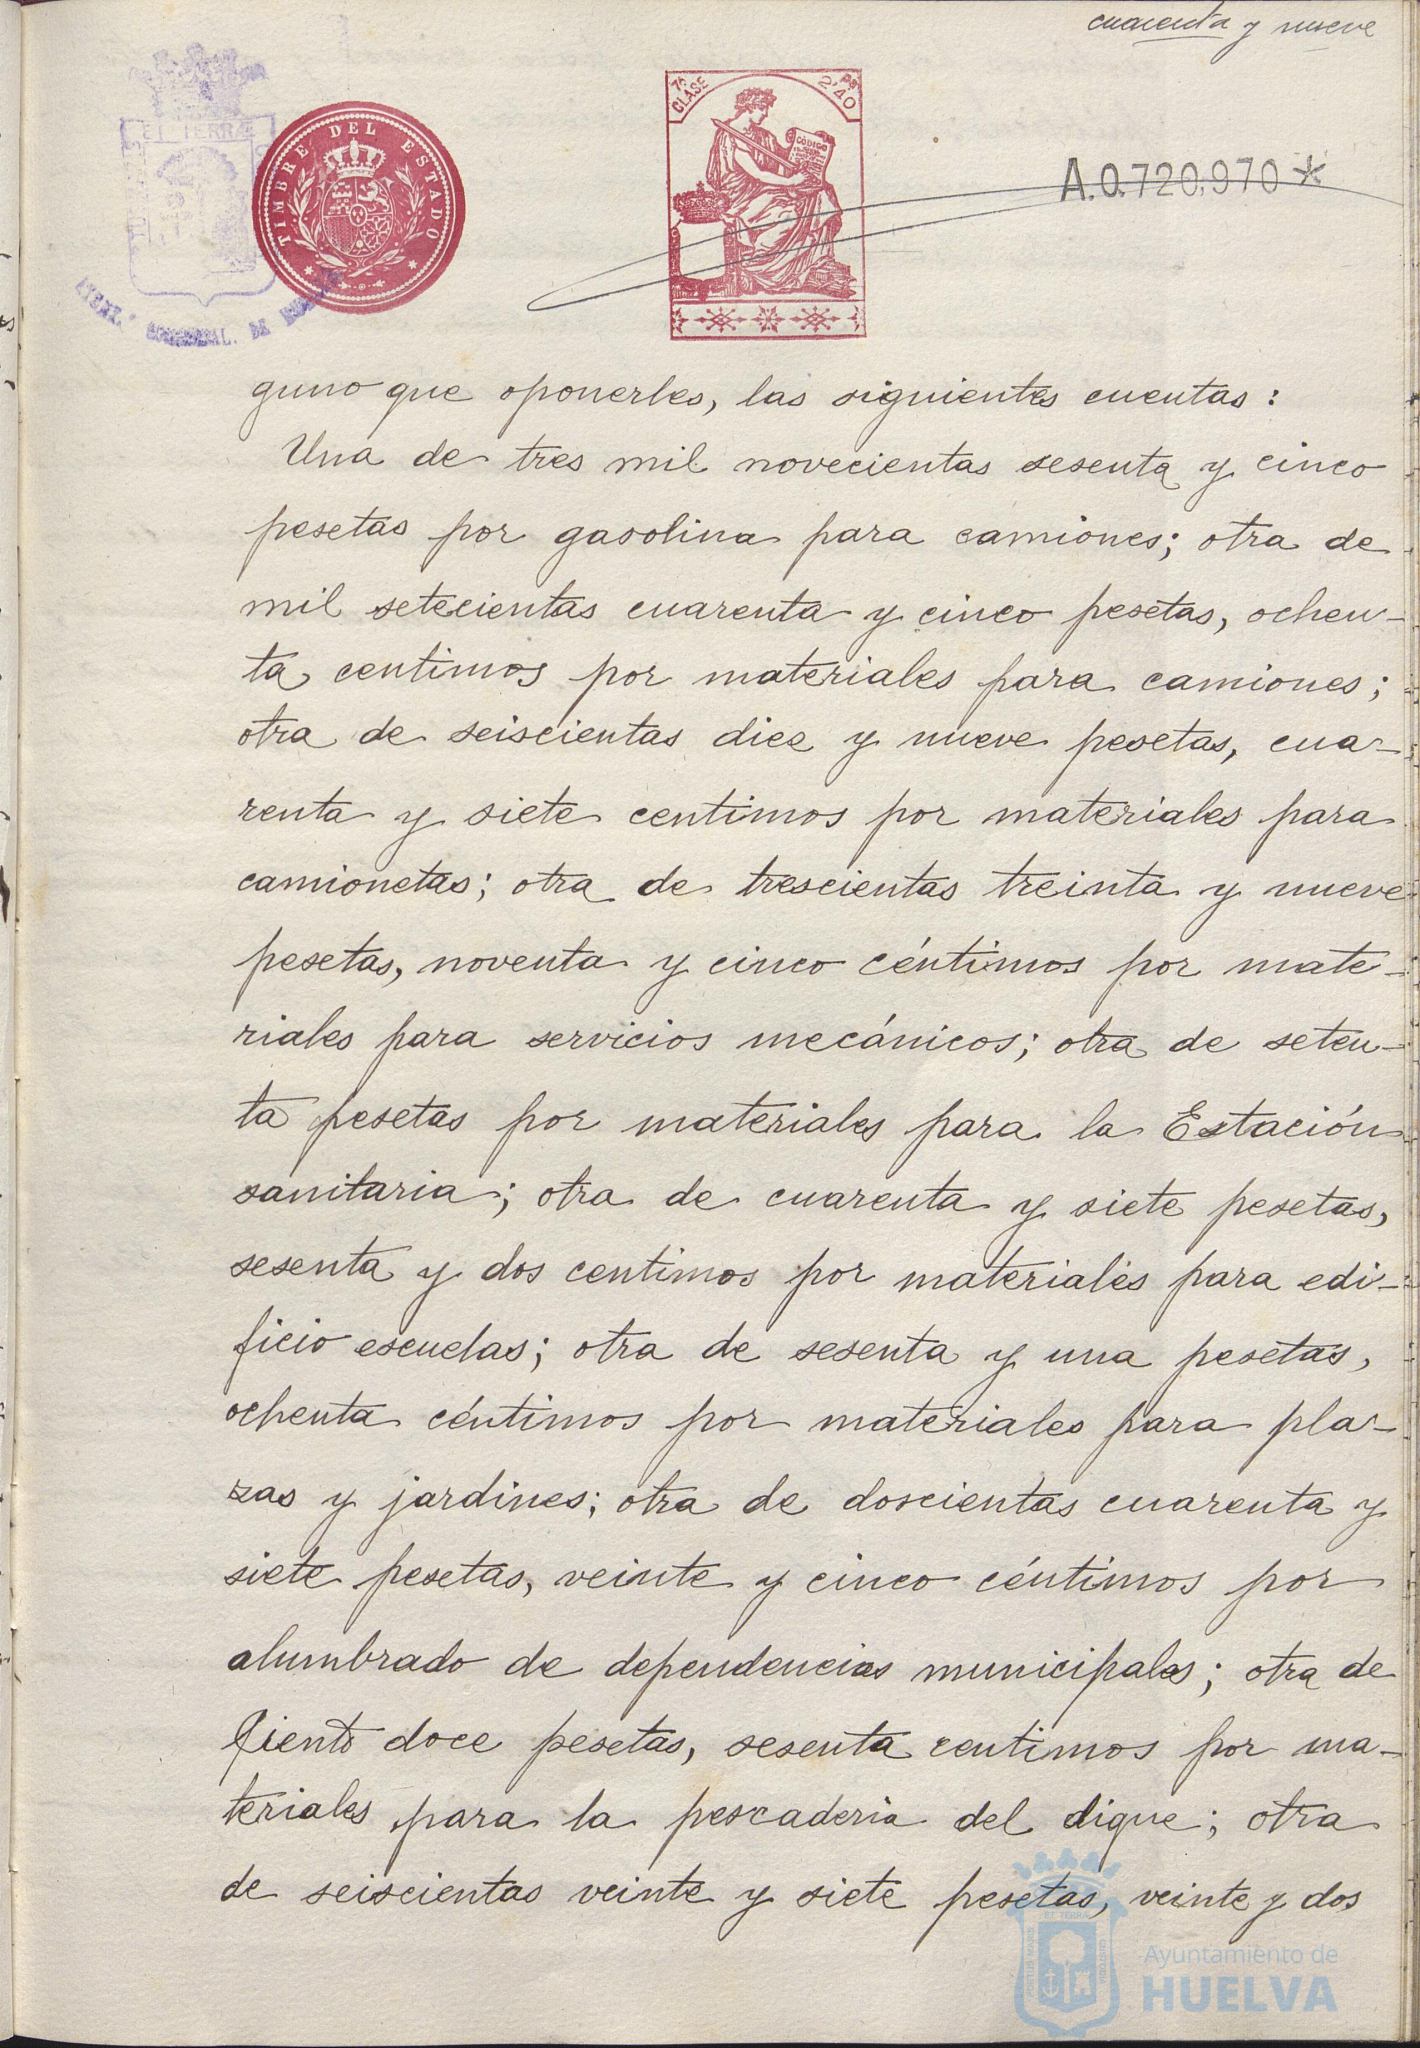 cuarenta y nueve
TIMBRE DEL ESTADO
7ª CLASE
2'40
CÓDIGO
A.0.720,970*
guno que oponerles, las siguientes cuentas:
Una de tres mil novecientas sesenta y cinco
pesetas por gasolina para camiones; otra de
mil setecientas cuarenta y cinco pesetas, ochen-
ta centimos por materiales para camiones;
otra de seiscientas diez y nueve pesetas, cua-
renta y siete centimos por materiales para
camionetas; otra de trescientas treinta y nueve
pesetas, noventa y cinco céntimos por mate-
riales para servicios mecánicos; otra de seten-
ta pesetas por materiales para la Estación
sanitaria; otra de cuarenta y siete pesetas,
sesenta y dos centimos por materiales para edi-
ficio escuelas; otra de sesenta y una pesetas,
ochenta céntimos por materiales para pla-
zas y jardines; otra de doscientas cuarenta y
siete pesetas, veinte y cinco céntimos por
alumbrado de dependencias municipales; otra de
ciento doce pesetas, sesenta centimos por ma-
teriales para la pescaderia del dique; otra
de seiscientas veinte y siete pesetas, veinte y dos
Ayuntamiento de
HUELVA